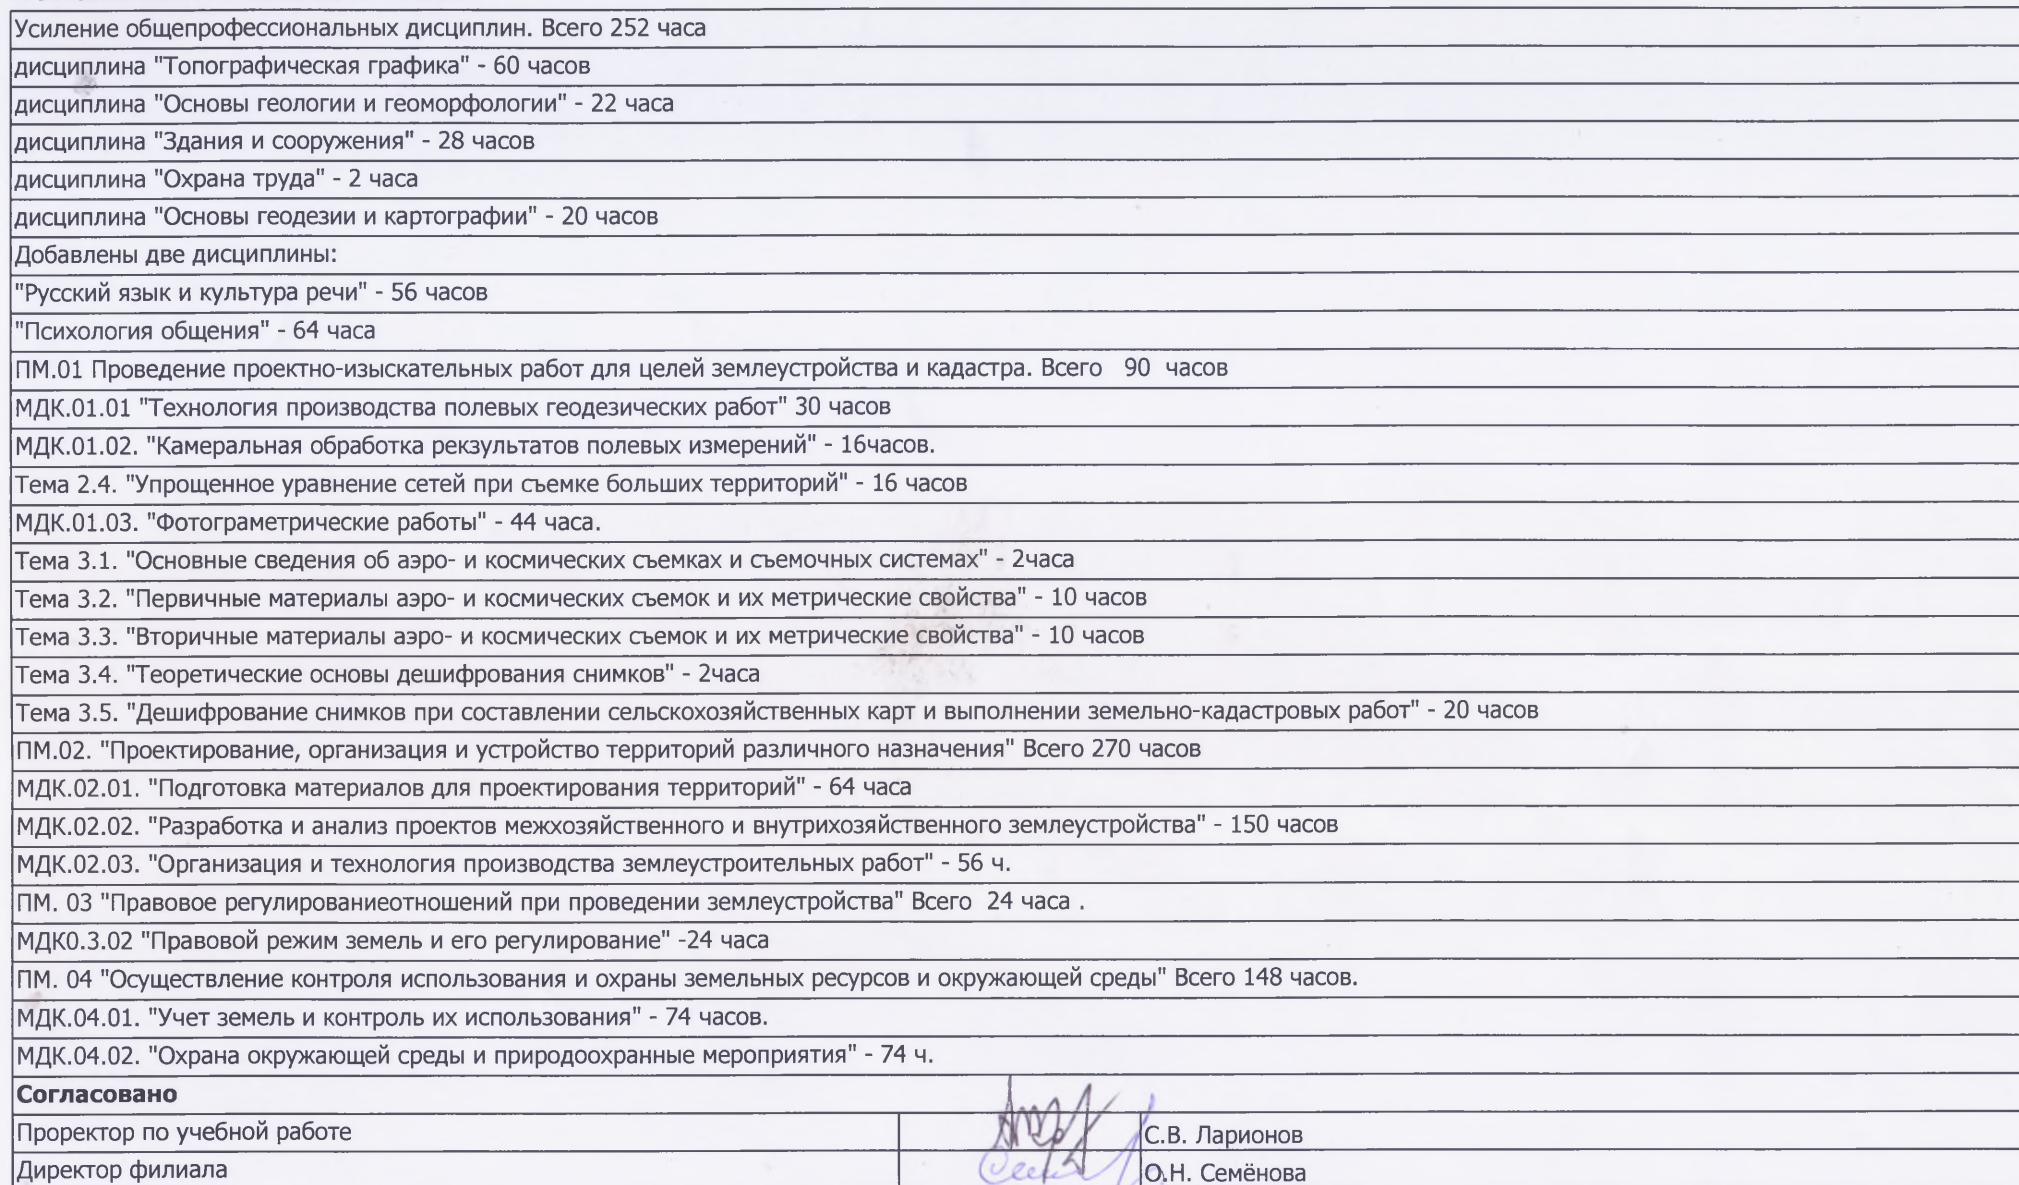 Усиление общепрофессиональных дисциплин. Всего 252 часа
дисциплина "Топографическая графика" - 60 часов
дисциплина "Основы геологии и геоморфологии" - 22 часа
дисциплина "Здания и сооружения" - 28 часов
дисциплина "Охрана труда" - 2 часа
дисциплина "Основы геодезии и картографии" - 20 часов
Добавлены две дисциплины:
"Русский язык и культура речи" - 56 часов
"Психология общения" - 64 часа
ПМ.01 Проведение проектно-изыскательных работ для целей землеустройства и кадастра. Всего 90 часов
МДК.01.01 "Технология производства полевых геодезических работ" 30 часов
МДК.01.02. "Камеральная обработка рекзультатов полевых измерений" - 16часов.
Тема 2.4. "Упрощенное уравнение сетей при съемке больших территорий" - 16 часов
МДК.01.03. "Фотограметрические работы" - 44 часа.
Тема 3.1. "Основные сведения об аэро- и космических съемках и съемочных системах" - 2часа
Тема 3.2. "Первичные материалы аэро- и космических съемок и их метрические свойства" - 10 часов
Тема 3.3. "Вторичные материалы аэро- и космических съемок и их метрические свойства" - 10 часов
Тема 3.4. "Теоретические основы дешифрования снимков" - 2часа
Тема 3.5. "Дешифрование снимков при составлении сельскохозяйственных карт и выполнении земельно-кадастровых работ" - 20 часов
ПМ.02. "Проектирование, организация и устройство территорий различного назначения" Всего 270 часов
МДК.02.01. "Подготовка материалов для проектирования территорий" - 64 часа
МДК.02.02. "Разработка и анализ проектов межхозяйственного и внутрихозяйственного землеустройства" - 150 часов
МДК.02.03. "Организация и технология производства землеустроительных работ" - 56 ч.
ПМ. 03 "Правовое регулированиеотношений при проведении землеустройства" Всего 24 часа .
МДК0.3.02 "Правовой режим земель и его регулирование" -24 часа
ПМ. 04 "Осуществление контроля использования и охраны земельных ресурсов и окружающей среды" Всего 148 часов.
МДК.04.01. "Учет земель и контроль их использования" - 74 часов.
МДК.04.02. "Охрана окружающей среды и природоохранные мероприятия" - 74 ч.
Согласовано
Проректор по учебной работе С.В. Ларионов
Директор филиала О.Н. Семёнова